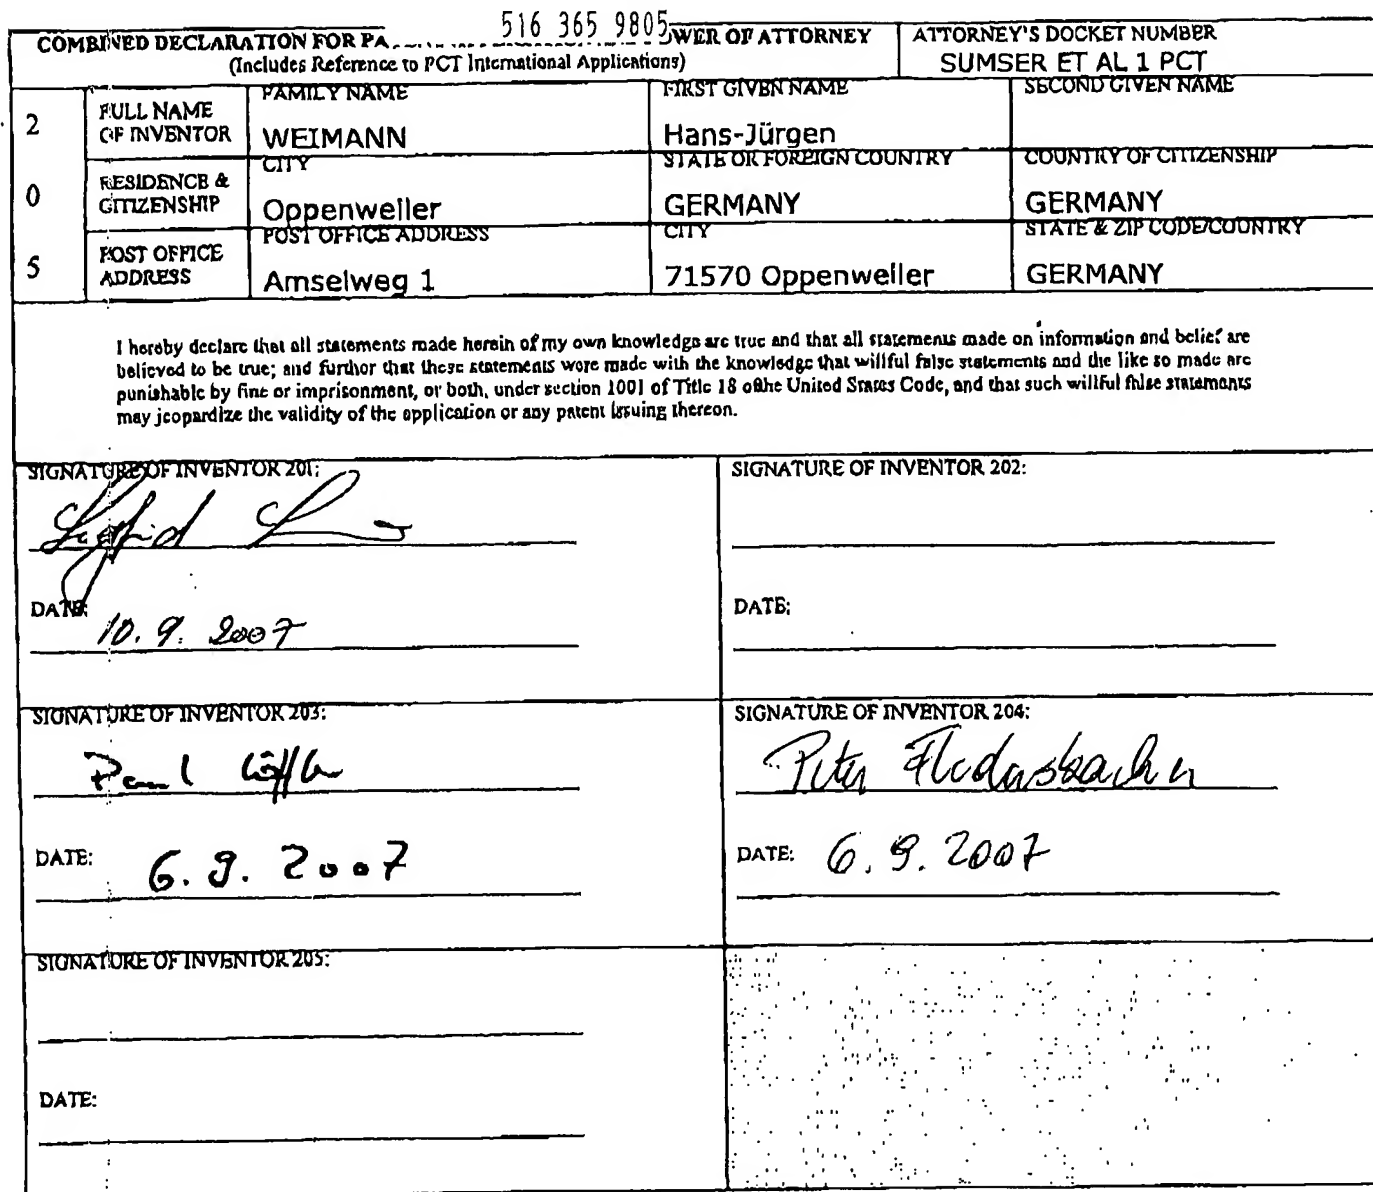 516 365 9805
COMBINED DECLARATION FOR PA WER OF ATTORNEY
(Includes Reference to PCT International Applications)
ATTORNEY'S DOCKET NUMBER
SUMSER ET AL 1 PCT
2 0 5
FULL NAME OF INVENTOR
FAMILY NAME
WEIMANN
FIRST GIVEN NAME
Hans-Jürgen
SECOND GIVEN NAME
RESIDENCE & CITIZENSHIP
CITY
Oppenweiler
STATE OR FOREIGN COUNTRY
GERMANY
COUNTRY OF CITIZENSHIP
GERMANY
POST OFFICE ADDRESS
POST OFFICE ADDRESS
Amselweg 1
CITY
71570 Oppenweiler
STATE & ZIP CODE/COUNTRY
GERMANY
I hereby declare that all statements made herein of my own knowledge are true and that all statements made on information and belief are
believed to be true; and further that these statements were made with the knowledge that willful false statements and the like so made are
punishable by fine or imprisonment, or both, under section 1001 of Title 18 ofthe United States Code, and that such willful false statements
may jeopardize the validity of the application or any patent issuing thereon.
SIGNATURE OF INVENTOR 201:
DATE:
10.9.2007
SIGNATURE OF INVENTOR 202:
DATE:
SIGNATURE OF INVENTOR 203:
Paul Löffler
DATE: 6.9.2007
SIGNATURE OF INVENTOR 204:
Peter Fledersbacher
DATE: 6.9.2007
SIGNATURE OF INVENTOR 205:
DATE: